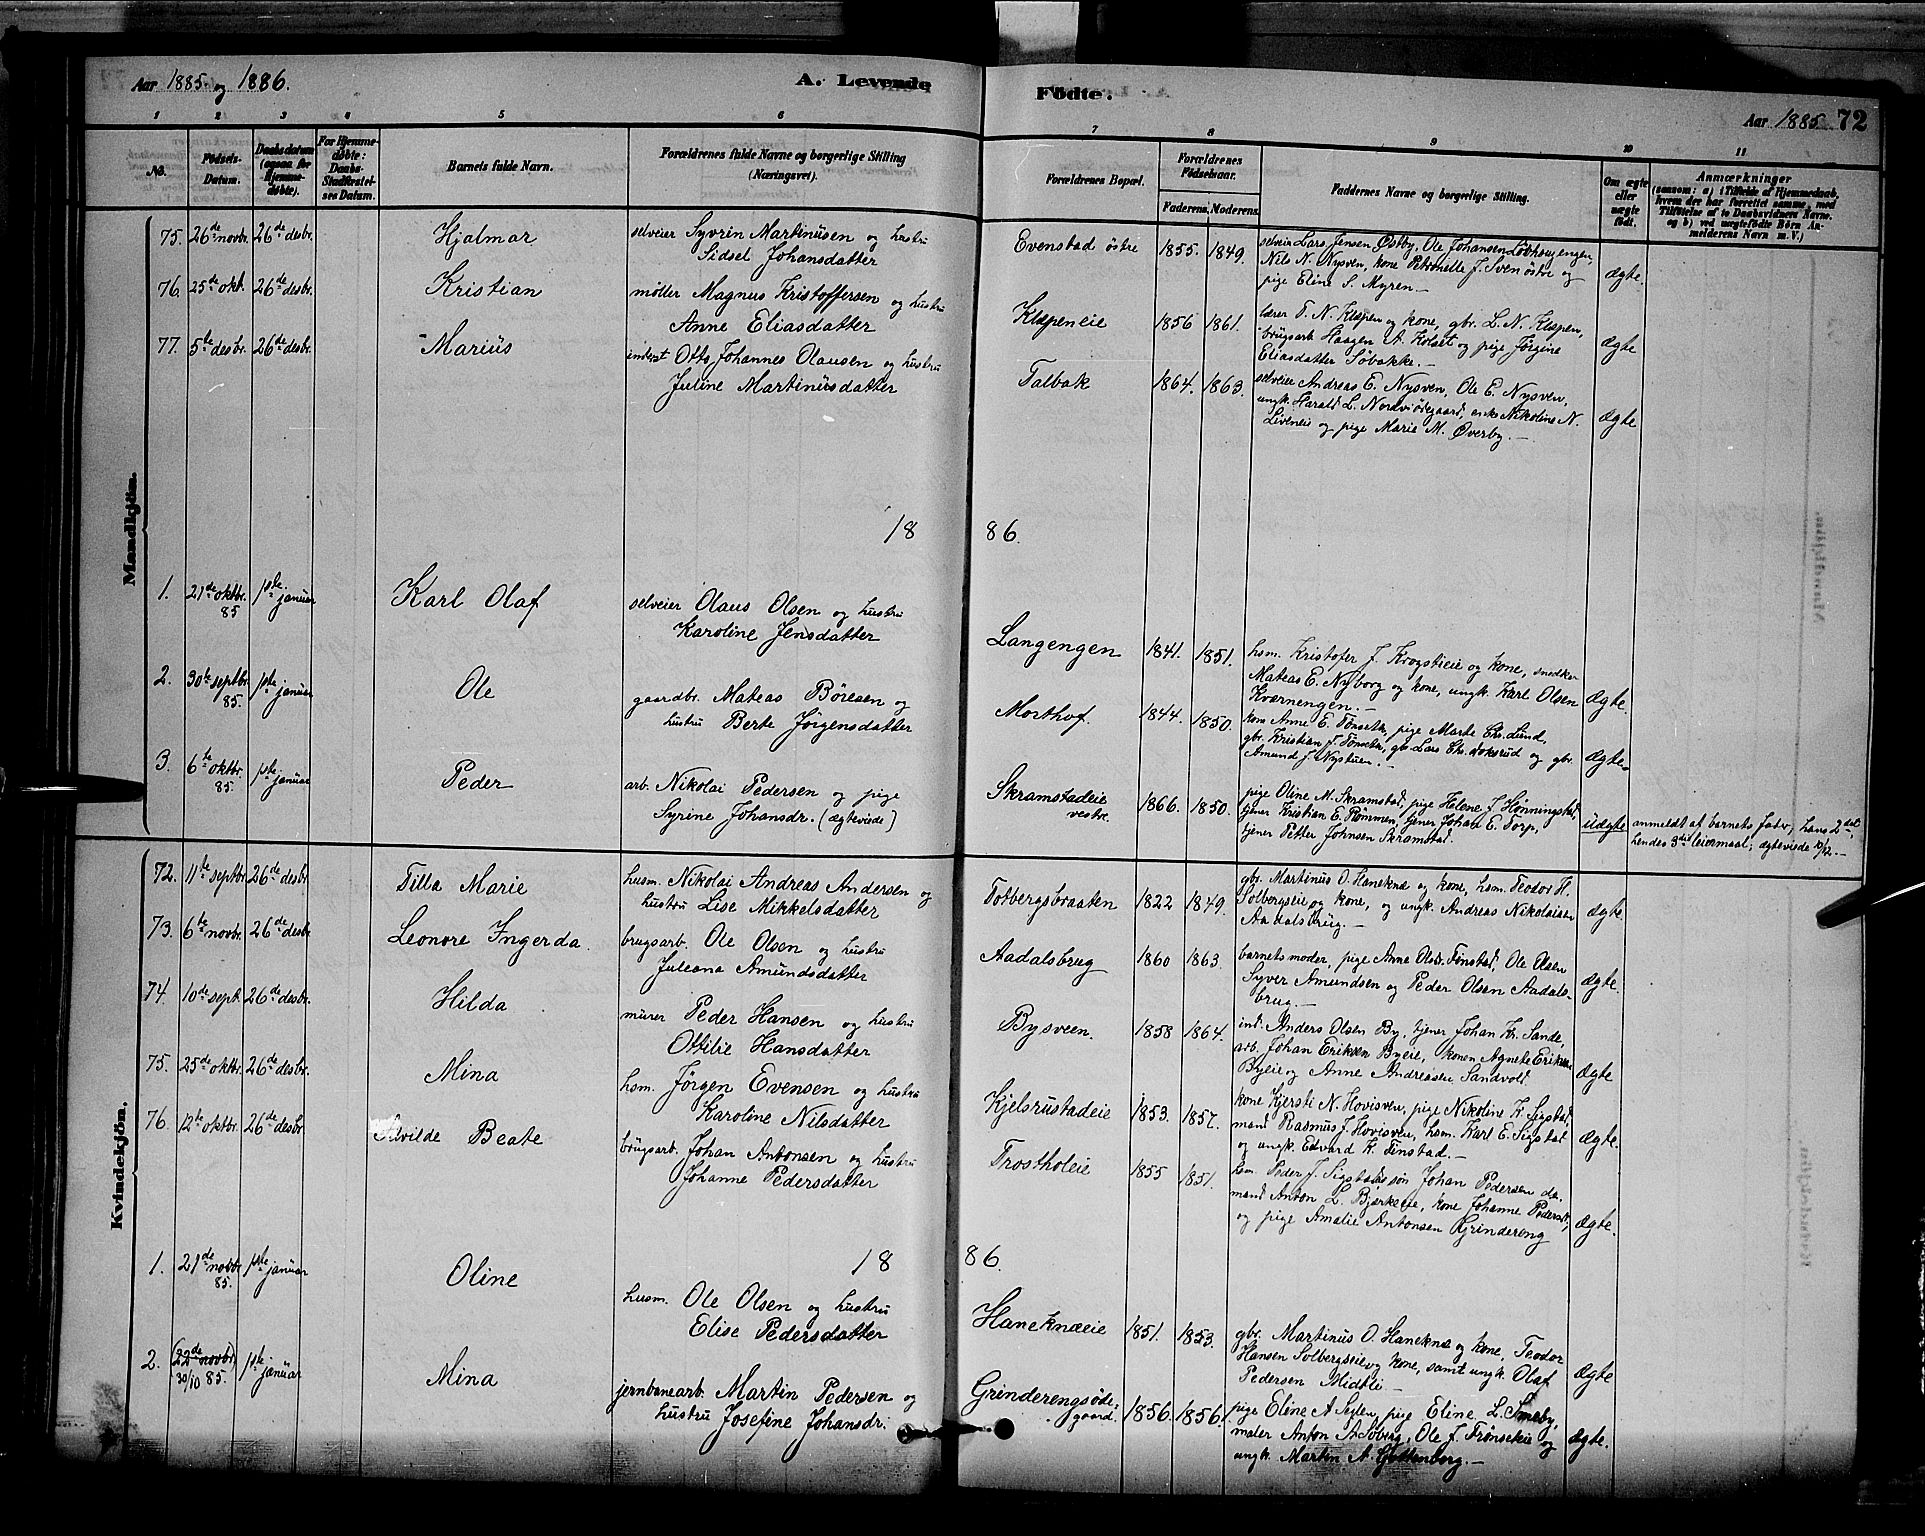 Aar 1885 og 1886.
A. Levende
Fødte.
Aar 1885
72
1 2 3 4 5 6
7 8 9 10 11
No.
Fødsels-Datum.
Daabsdatum (ogsaa for Hjemmedøbte).
For Hjemmedøbte: Daabs-Stadfæstelses Datum.
Barnets fulde Navn.
Forældrenes fulde Navne og borgerlige Stilling (Næringsvei).
Forældrenes Bopæl.
Forældrenes Fødselsaar.
Faderens. Moderens.
Faddernes Navne og borgerlige Stilling.
Om ægte eller uægte født.
Anmærkninger (saasom: a) i Tilfælde af Hjemmedaab, hvem der har forrettet samme, med Tilføielse af to Daabsvidners Navne. og b) ved uægtefødte Børn Anmelderens Navn m. V.)
Mandkjøn.
75. 26de novbr. 26de desbr. Hjalmar selveier Syvrin Martinusen og hustru
Sidsel Johansdatter
Evenstad østre 1855. 1849. selveier Lars Jensen Østby, Ole Johansen Løvhaugengen,
Nils N. Nysven, kone Petronelle J. Iven østre og
pige Eline S. Myren.— ægte.
76. 25de okt. 26de desbr. Kristian møller Magnus Kristoffersen og hustru
Anne Eliasdatter
Klæpeneie 1856 1861. lærer T. N. Klæpen og kone, gbr. L. N. Klæpen,
brugsarb. Haagen A. Kolset og pige Jørgine
Eliasdatter Søbakke.— ægte
77. 5te desbr. 26de desbr. Marius inderst Otto Johannes Olausen og hustru
Juline Martinusdatter
Talbak 1864. 1863. selveier Andreas E. Nysven, Ole E. Nysven,
ungk. Harald L. Nordviødegaard, enke Nikoline N.
Liveneie og pige Marie M. Øverby.— Ægte
18 86.
1. 21de oktbr. 85 1ste januar Karl Olaf selveier Olaus Olsen og hustru
Karoline Jensdatter
Langengen 1841. 1851. hsm. Kristofer J. Krogstieie og kone, snedker
Mateas E. Nyborg og kone, ungk. Karl Olsen
Kværnengen.— Ægte.
2. 30te septbr. 85. 1ste januar Ole gaardbr. Mateas Børesen og
hustru Berte Jørgensdatter
Morthof. 1844. 1850. kone Anne E. Tønseth, pige Marte Chr. Lund,
gbr. Kristian J. Tønseth, gbr. Lars Chr. Loksrud og gbr.
Amund J. Nystuen.— Ægte.
3. 6te oktbr. 85. 1ste januar Peder arb. Nikolai Pedersen og pige
Syrine Johansdr. (ægteviede)
Skramstadeie vestre 1866. 1850. pige Oline M. Skramstad, pige Helene J. Hønningstad,
tjener Kristian E. Rømmen, tjener Johan E. Torp,
tjener Petter Johnsen Skramstad. uægte anmeldt af barnets fader, hans 2det,
hendes 3die leiermaal; ægteviede 10/12.—
Kvindekjøn.
72. 11te septbr. 26de desbr. Tilla Marie husm. Nikolai Andreas Andersen og
hustru Lise Mikkelsdatter
Totbergsbraaten 1822 1849. gbr. Martinus O. Haneknæ og kone, hsm. Teodor H.
Solbergseie og kone, og ungk. Andreas Nikolaisen
Aadalsbrug.— Ægte.
73. 6te novbr. 26de desbr. Leonore Ingerda. brugsarb. Ole Olsen og hustru
Juleana Amundsdatter
Aadalsbrug 1860 1863. barnets moder, pige Anne Olsdr. Finstad, Ole Olsen
Syver Amundsen og Peder Olsen Aadals-
brug.— Ægte.
74. 10de sept. 26de desbr. Hilda murer Peder Hansen og hustru
Ottilie Hansdatter
Bysveen. 1858 1864. ind. Anders Olsen By, tjener Johan Kr. Sande,
arb. Johan Eriksen Byeie, konen Agnete Eriksen
Byeie og Anne Andreasen Sandvold. Ægte
75. 25de oktbr. 26de desbr. Mina hsm. Jørgen Evensen og hustru
Karoline Nilsdatter
Kjelsrustadeie 1853. 1857. kone Kjersti N. Hovisven, pige Nikoline K. Sigstad,
mand Rasmus J. Hovisven, hsm. Karl E. Sigstad
og ungk. Edvard K. Finstad.— Ægte.
76. 12te oktbr. 26de desbr. Alvilde Beate brugsarb. Johan Antonsen og hustru
Johanne Pedersdatter
Trostholeie 1855 1851. hsm. Peder J. Sigstad, søn Johan Pedersen do.
mand Anton L. Bjerkeeie, kone Johanne Pedersdr.
og pige Amalie Antonsen Grindereng Ægte.
18 86.
1. 21de novbr. 85. 1ste januar Oline husm. Ole Olsen og hustru
Elise Pedersdatter
Haneknæeie 1851. 1853. gbr. Martinus O. Haneknæ og kone, Teodor
Hansen Solbergseie og kone, samt ungk. Olaf
Pedersen Midtli— Ægte
2. (22de novbr) 30/10 85. 1ste januar Mina jernbanearb. Martin Pedersen og
hustru Josefine Johansdr.
Grinderengsøde-
gaard. 1856. 1856. pige Eline A Seglen, pige Eline L. Smeby,
maler Anton A Soberg, Ole J. Frønsekie og
ungk. Martin A. Guttenborg.— Ægte.